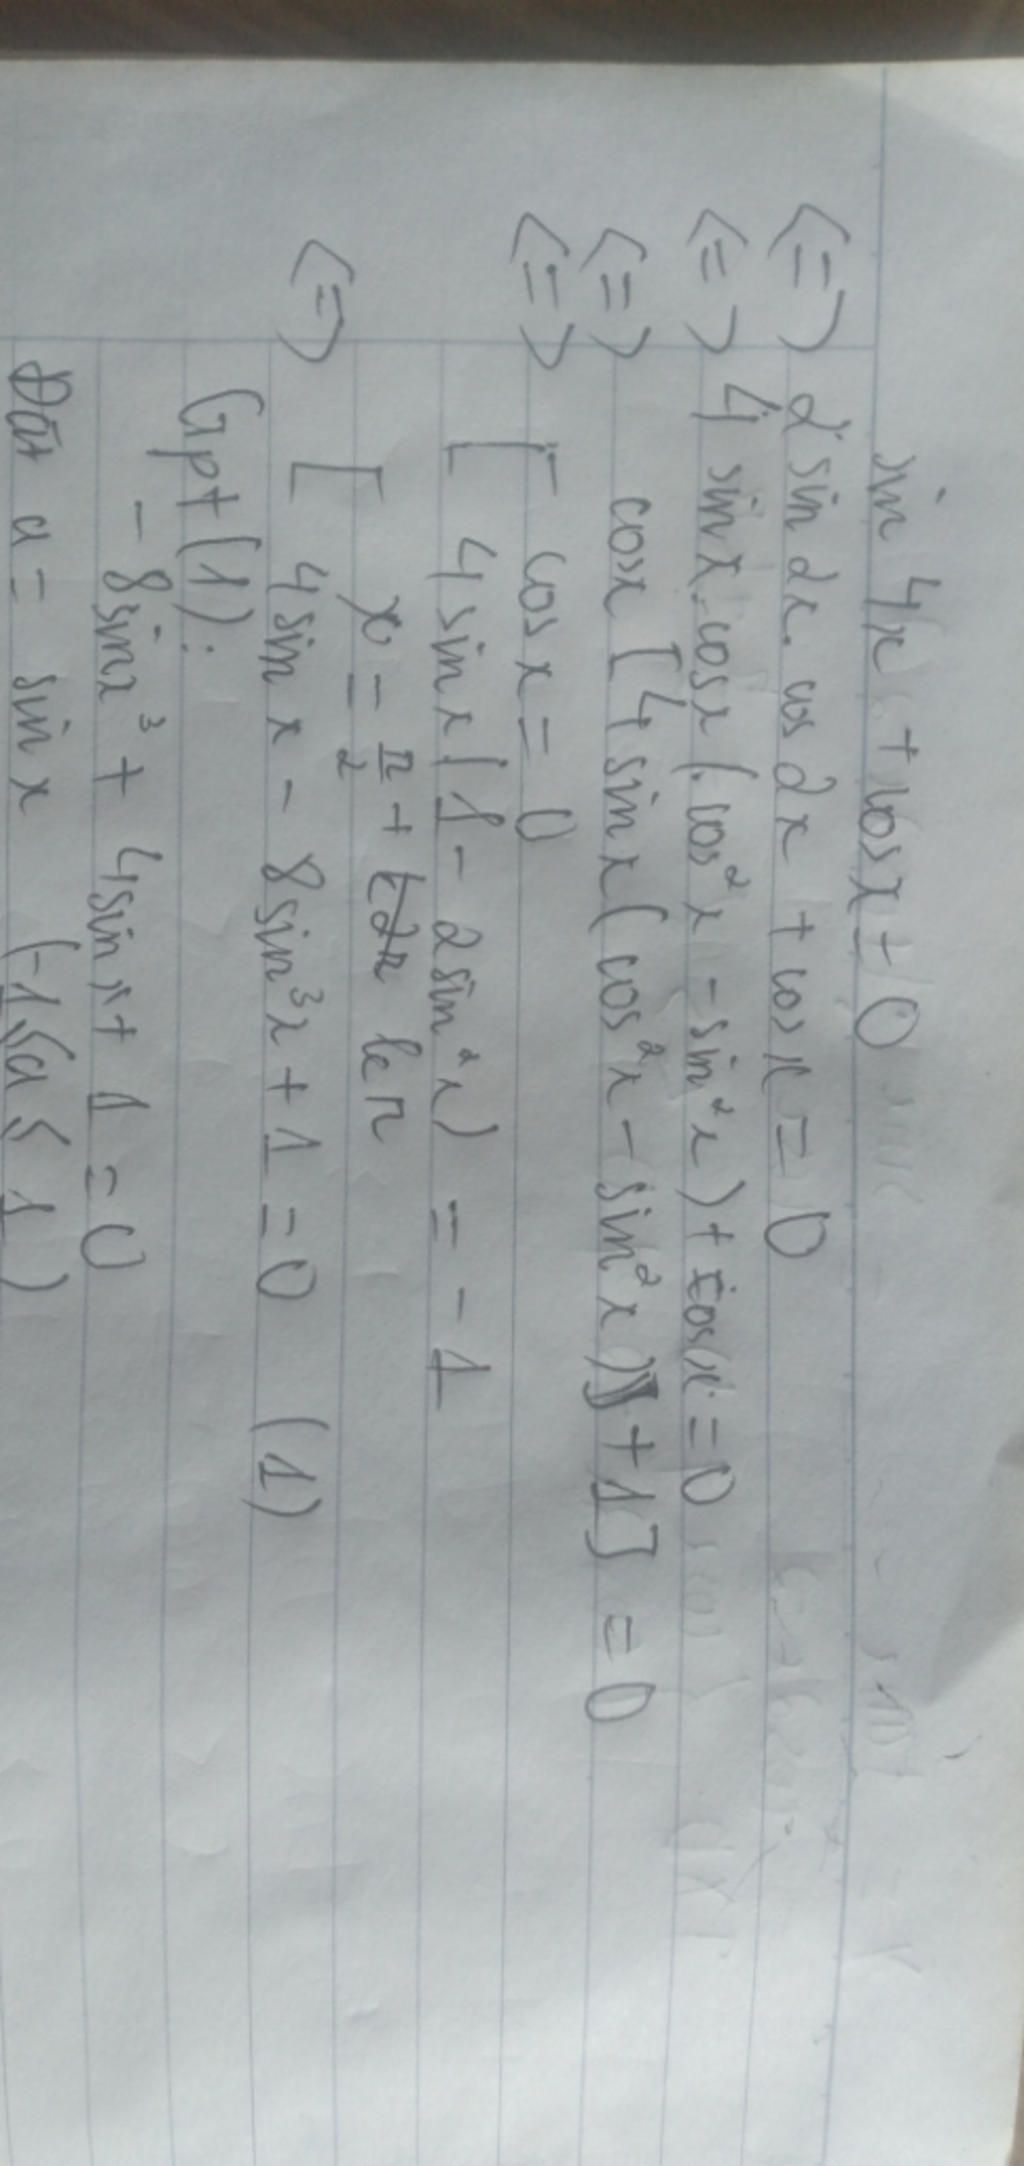 sin 4x + cosx = 0
<=> 2 sin 2x. cos 2x + cos x = 0
<=> 4 sinx. cosx (cos²x - sin²x) + cosx = 0
<=> cosx [4 sinx (cos²x - sin²x) + 1] = 0
<=> [ cos x = 0
4 sinx (1 - 2sin²x) = -1
<=> [ x = π/2 + k2π
4sin x - 8sin³x + 1 = 0 (1)
Gpt (1):
- 8sinx³ + 4sinx + 1 = 0
Đặt a = sin x (-1 ≤ a ≤ 1)